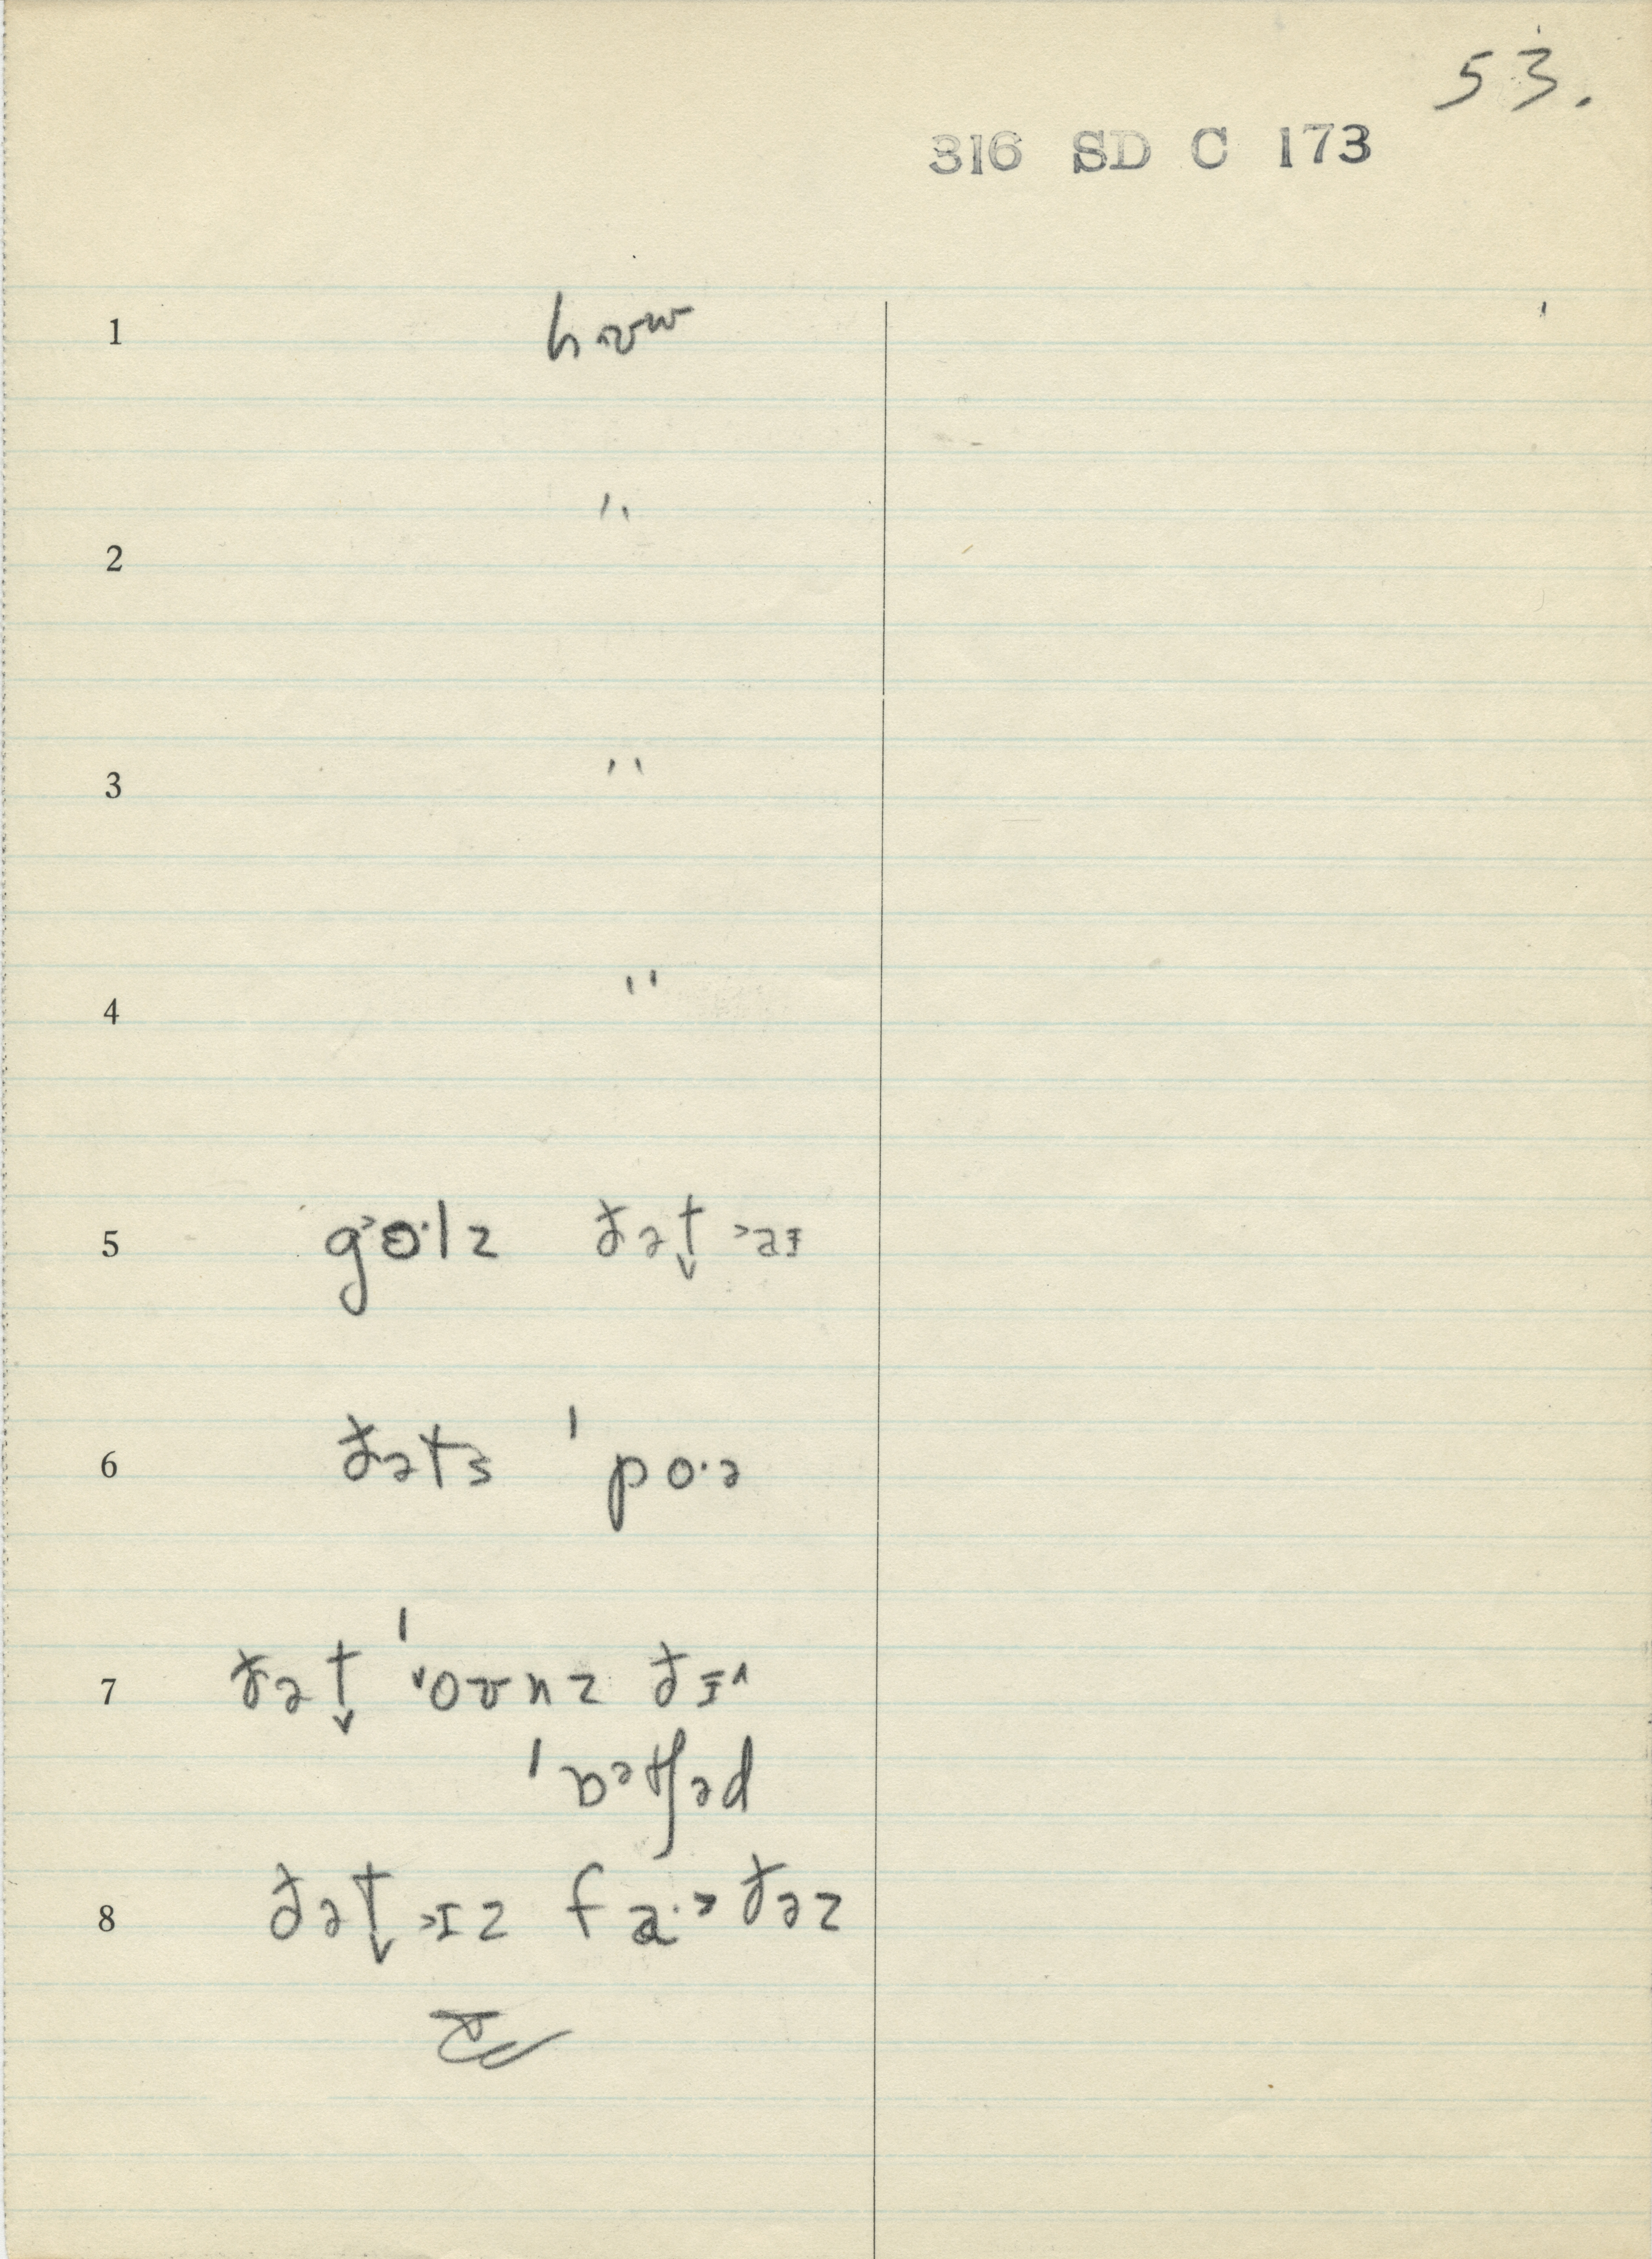 53.
316 SD C 173
1 hɑʊw
2 "
3 "
4 "
5 g>o·lz ðət̬ >aɪ
6 ðəts ˈpo·ə
7 ðət̬ ˈ˅oʊnz ðɪ^
ˈɒ˒tʃəd
8 ðət̬ >ɪz fa·>ðəz